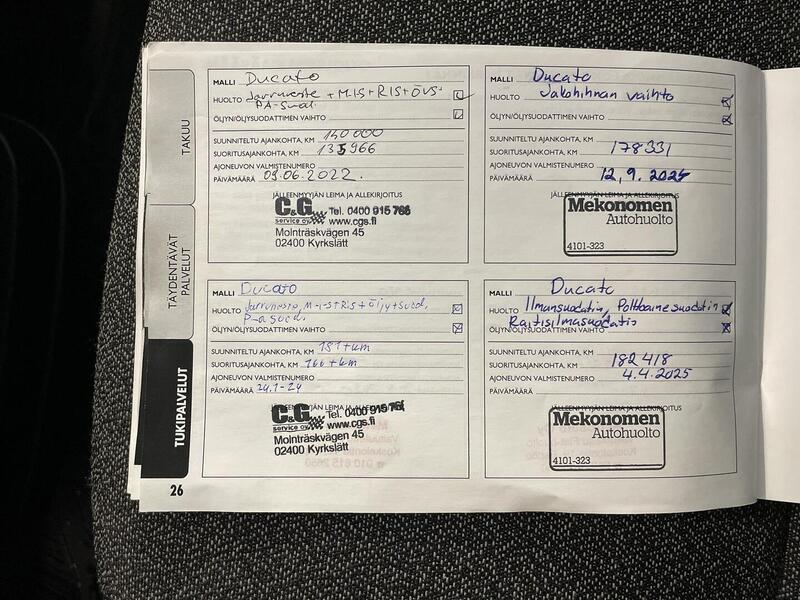 TAKUU
TÄYDENTÄVÄT
PALVELUT
TUKIPALVELUT
26
MALLI Ducato
HUOLTO Jarruneste + M-I-S + RIS + ÖVS+
PA-Suod.
ÖLJYN/ÖLJYSUODATTIMEN VAIHTO
SUUNNITELTU AJANKOHTA, KM 140 000
SUORITUSAJANKOHTA, KM 135966
AJONEUVON VALMISTENUMERO
PÄIVÄMÄÄRÄ 09.06.2022.
JÄLLEENMYYJÄN LEIMA JA ALLEKIRJOITUS
C&G Tel. 0400 915 766
service oy www.cgs.fi
Molnträskvägen 45
02400 Kyrkslätt
MALLI Ducato
HUOLTO Jarruneste, M-i-S+RiS + Öljy+suod,
P-a suod.
ÖLJYN/ÖLJYSUODATTIMEN VAIHTO
SUUNNITELTU AJANKOHTA, KM
SUORITUSAJANKOHTA, KM 166 tkm
AJONEUVON VALMISTENUMERO
PÄIVÄMÄÄRÄ 24.1-24
JÄLLEENMYYJÄN LEIMA JA ALLEKIRJOITUS
C&G Tel. 0400 915 766
service oy www.cgs.fi
Molnträskvägen 45
02400 Kyrkslätt
MALLI Ducato
HUOLTO Jakohihnan vaihto
ÖLJYN/ÖLJYSUODATTIMEN VAIHTO
SUUNNITELTU AJANKOHTA, KM
SUORITUSAJANKOHTA, KM 178331
AJONEUVON VALMISTENUMERO
PÄIVÄMÄÄRÄ 12.9.2024
JÄLLEENMYYJÄN LEIMA JA ALLEKIRJOITUS
Mekonomen
Autohuolto
4101-323
MALLI Ducato
HUOLTO Ilmansuodatin, Polttoainesuodatin
Raitisilmasuodatin
ÖLJYN/ÖLJYSUODATTIMEN VAIHTO
SUUNNITELTU AJANKOHTA, KM
SUORITUSAJANKOHTA, KM 182 418
AJONEUVON VALMISTENUMERO
PÄIVÄMÄÄRÄ 4.4.2025
JÄLLEENMYYJÄN LEIMA JA ALLEKIRJOITUS
Mekonomen
Autohuolto
4101-323